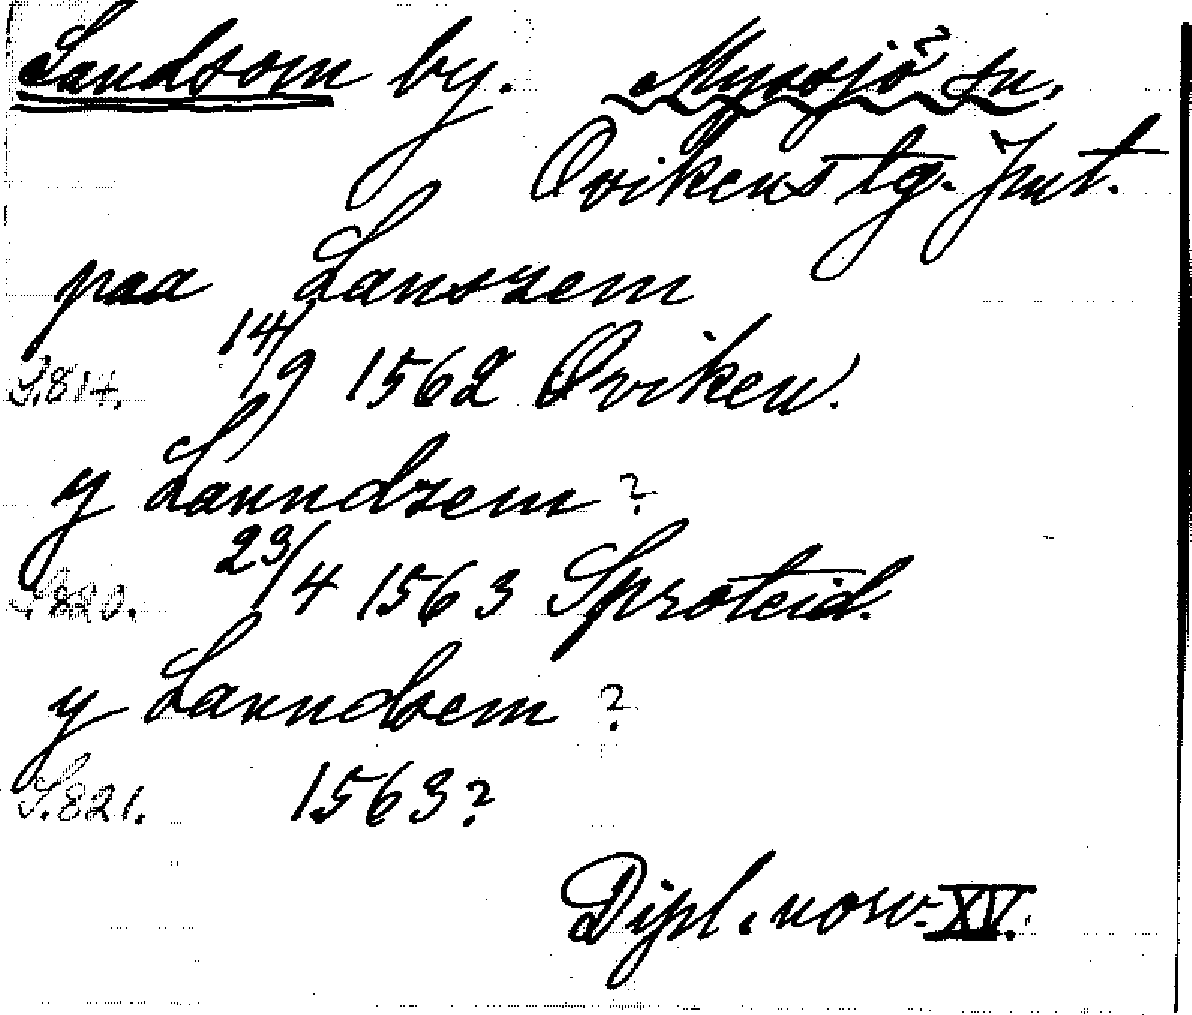 Sandsom by. Myssjö sn.
Ovikens tg. Jmt.
paa Lanszem
S. 814. 14/9 1562 Oviken.
y Lanndzem ?
S. 820. 23/4 1563 Sproteid.
y Lanndsem ?
S. 821. 1563?
Dipl. norv. XV.